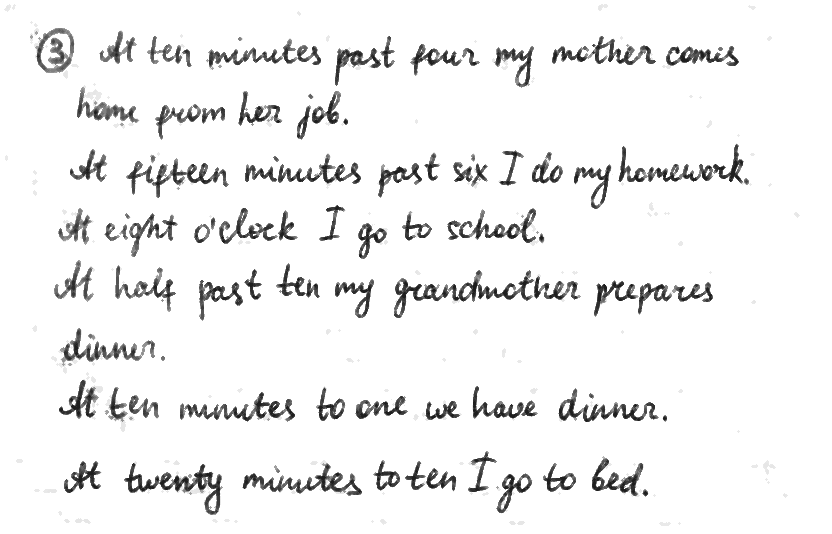 ③ At ten minutes past four my mother comes
home from her job.
At fifteen minutes past six I do my homework.
At eight o'clock I go to school.
At half past ten my grandmother prepares
dinner.
At ten minutes to one we have dinner.
At twenty minutes to ten I go to bed.